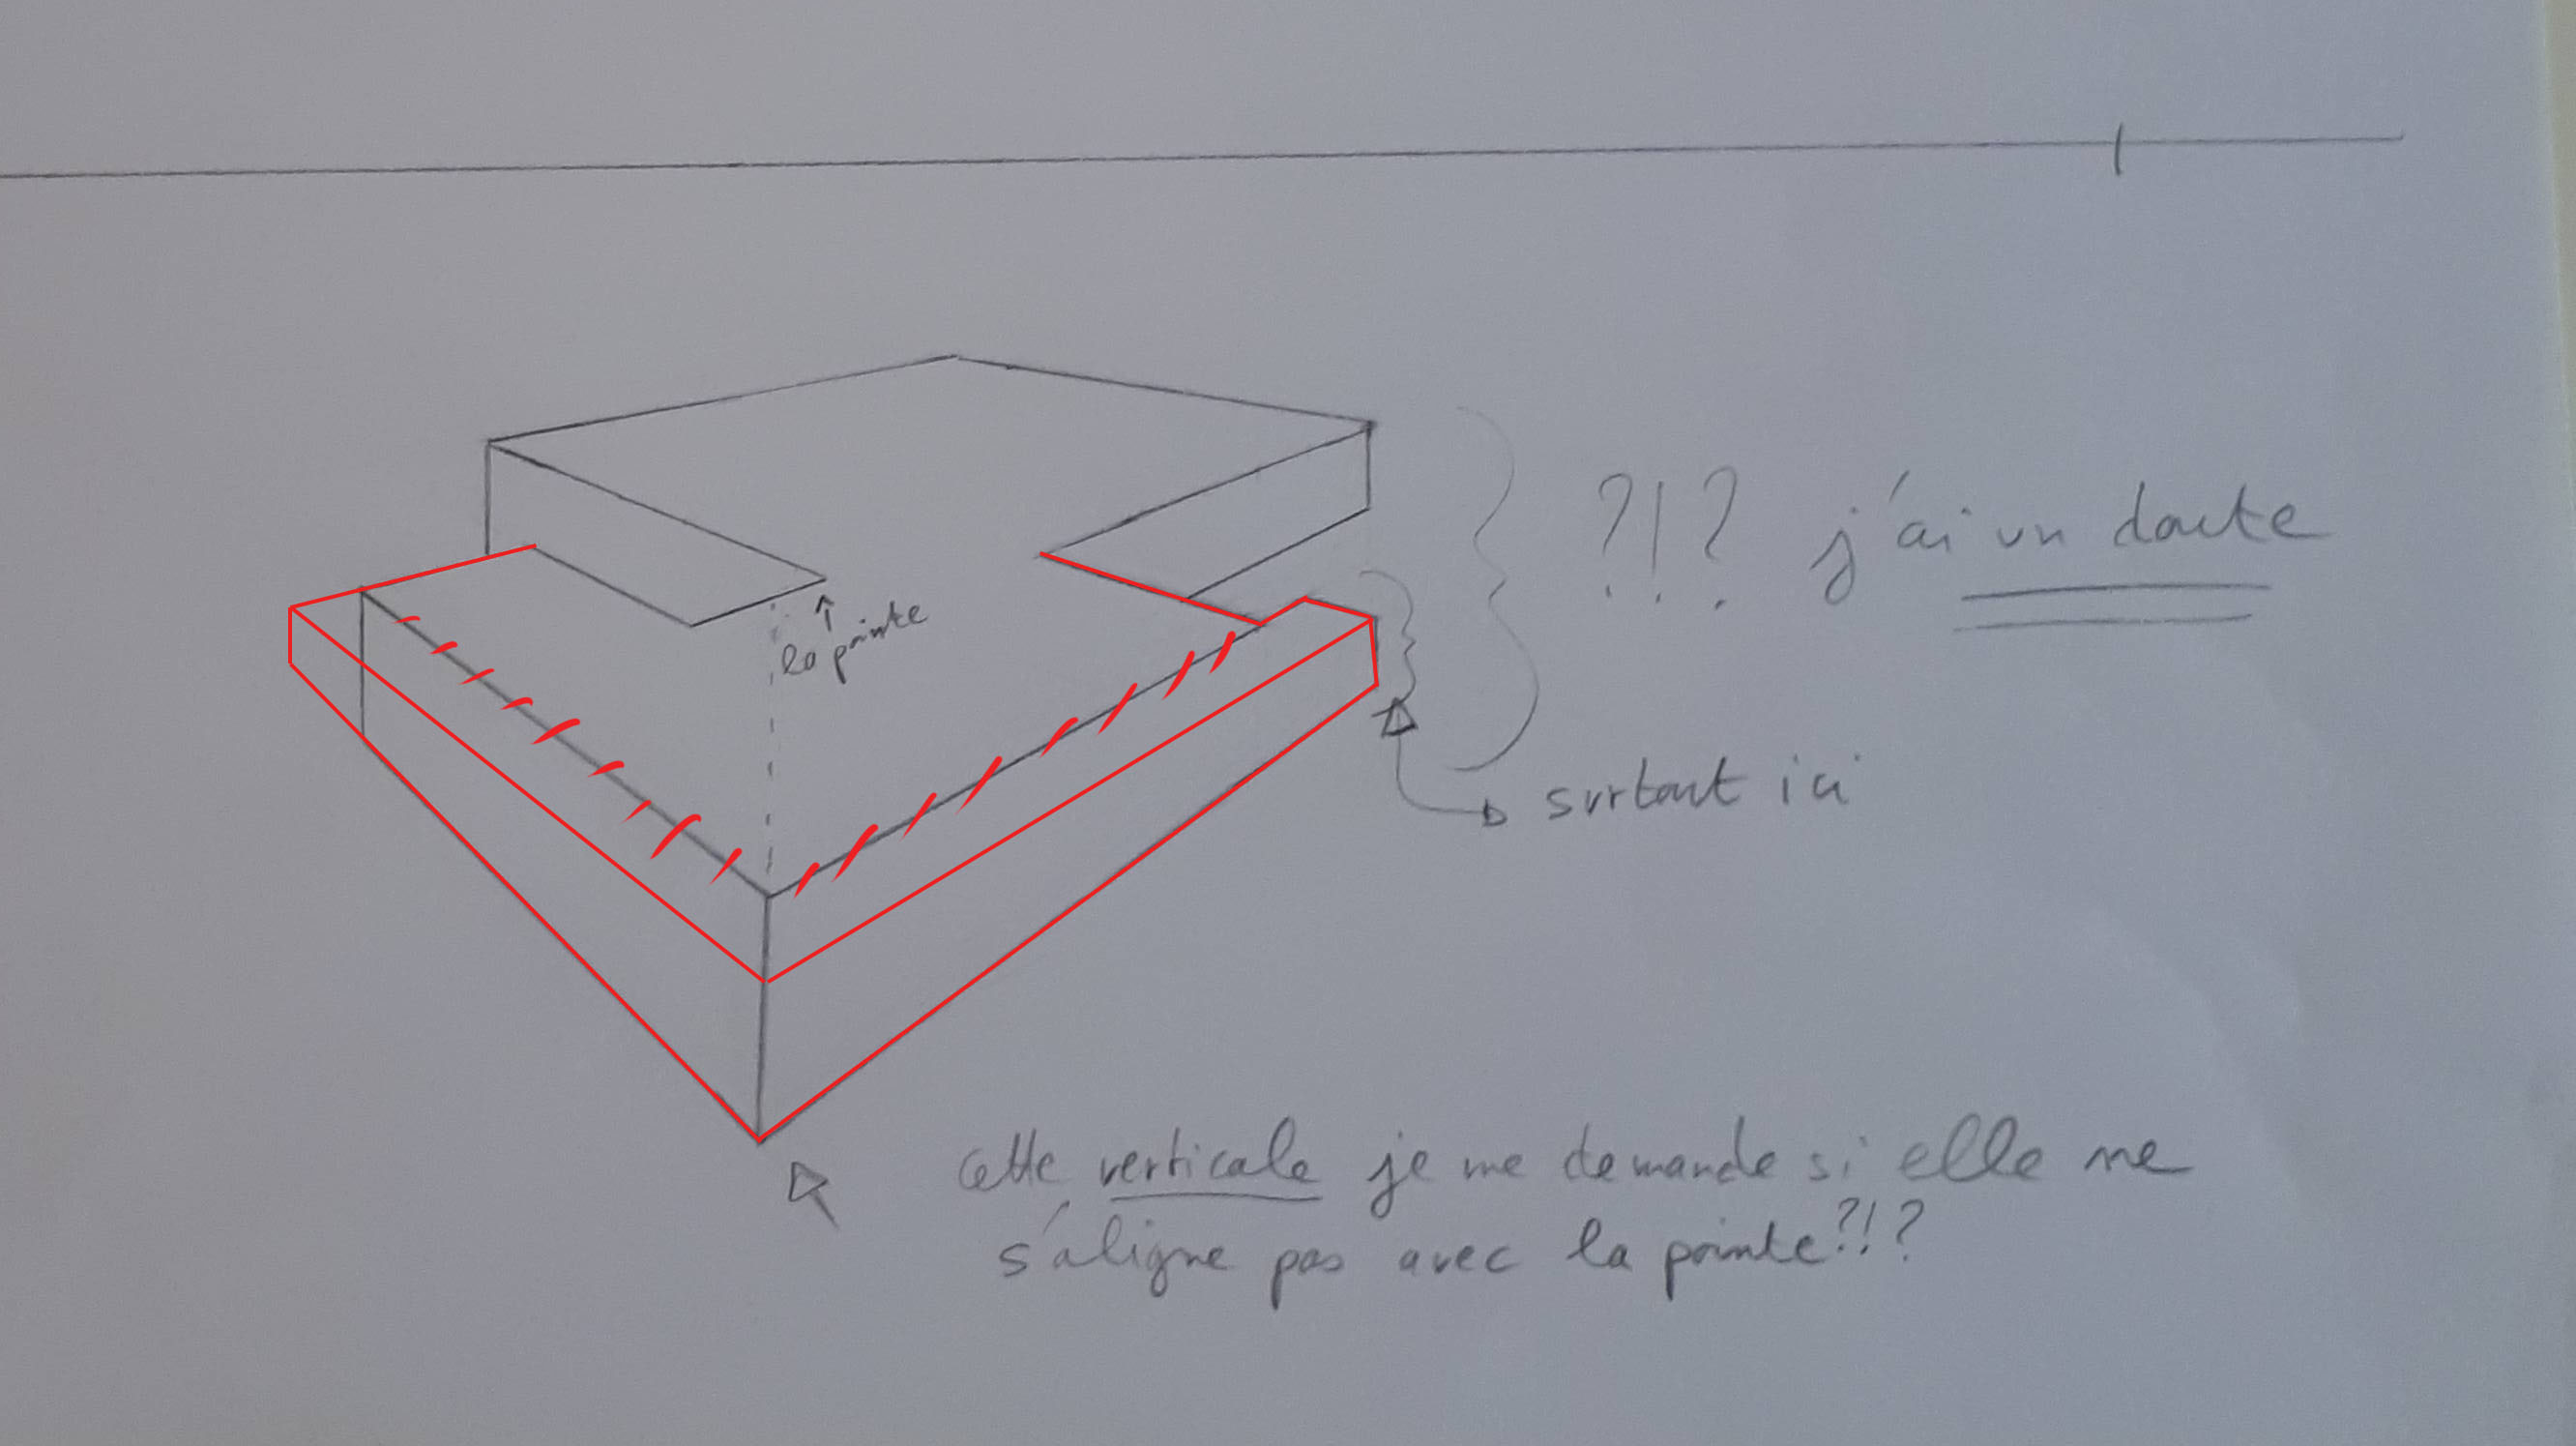 la pointe
?!? j'ai un doute
surtout ici
cette verticale je me demande si elle ne
s'aligne pas avec la pointe?!?